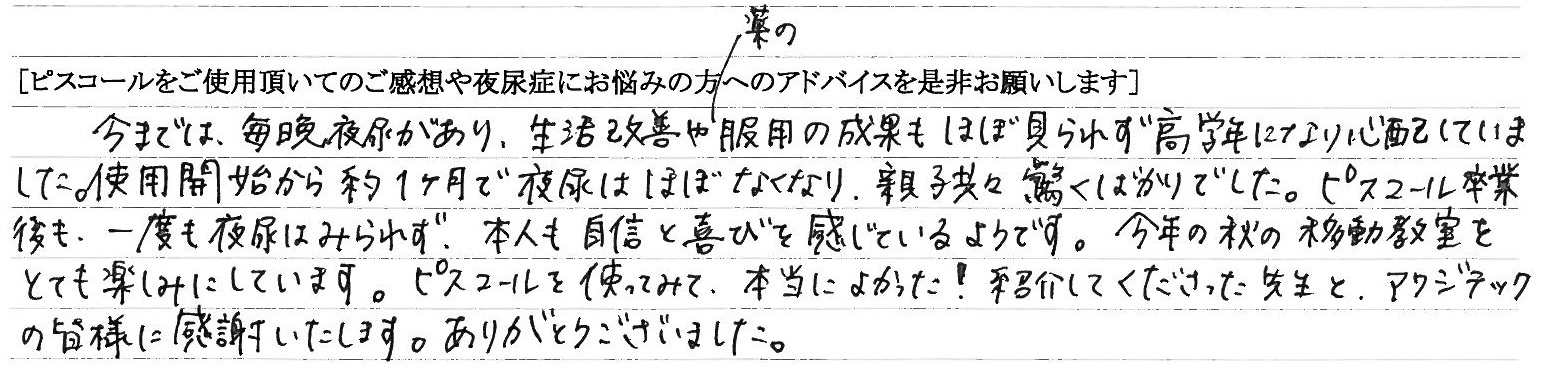 薬の
[ピスコールをご使用頂いてのご感想や夜尿症にお悩みの方へのアドバイスを是非お願いします]
今までは、毎晩夜尿があり、生活改善や服用の成果もほぼ見られず高学年になり心配していま
した。使用開始から約1ヶ月で夜尿はほぼなくなり、親子共々驚くばかりでした。ピスコール卒業
後も、一度も夜尿はみられず、本人も自信と喜びを感じているようです。今年の秋の移動教室を
とても楽しみにしています。ピスコールを使ってみて、本当によかった！紹介してくださった先生と、アワジテック
の皆様に感謝いたします。ありがとうございました。